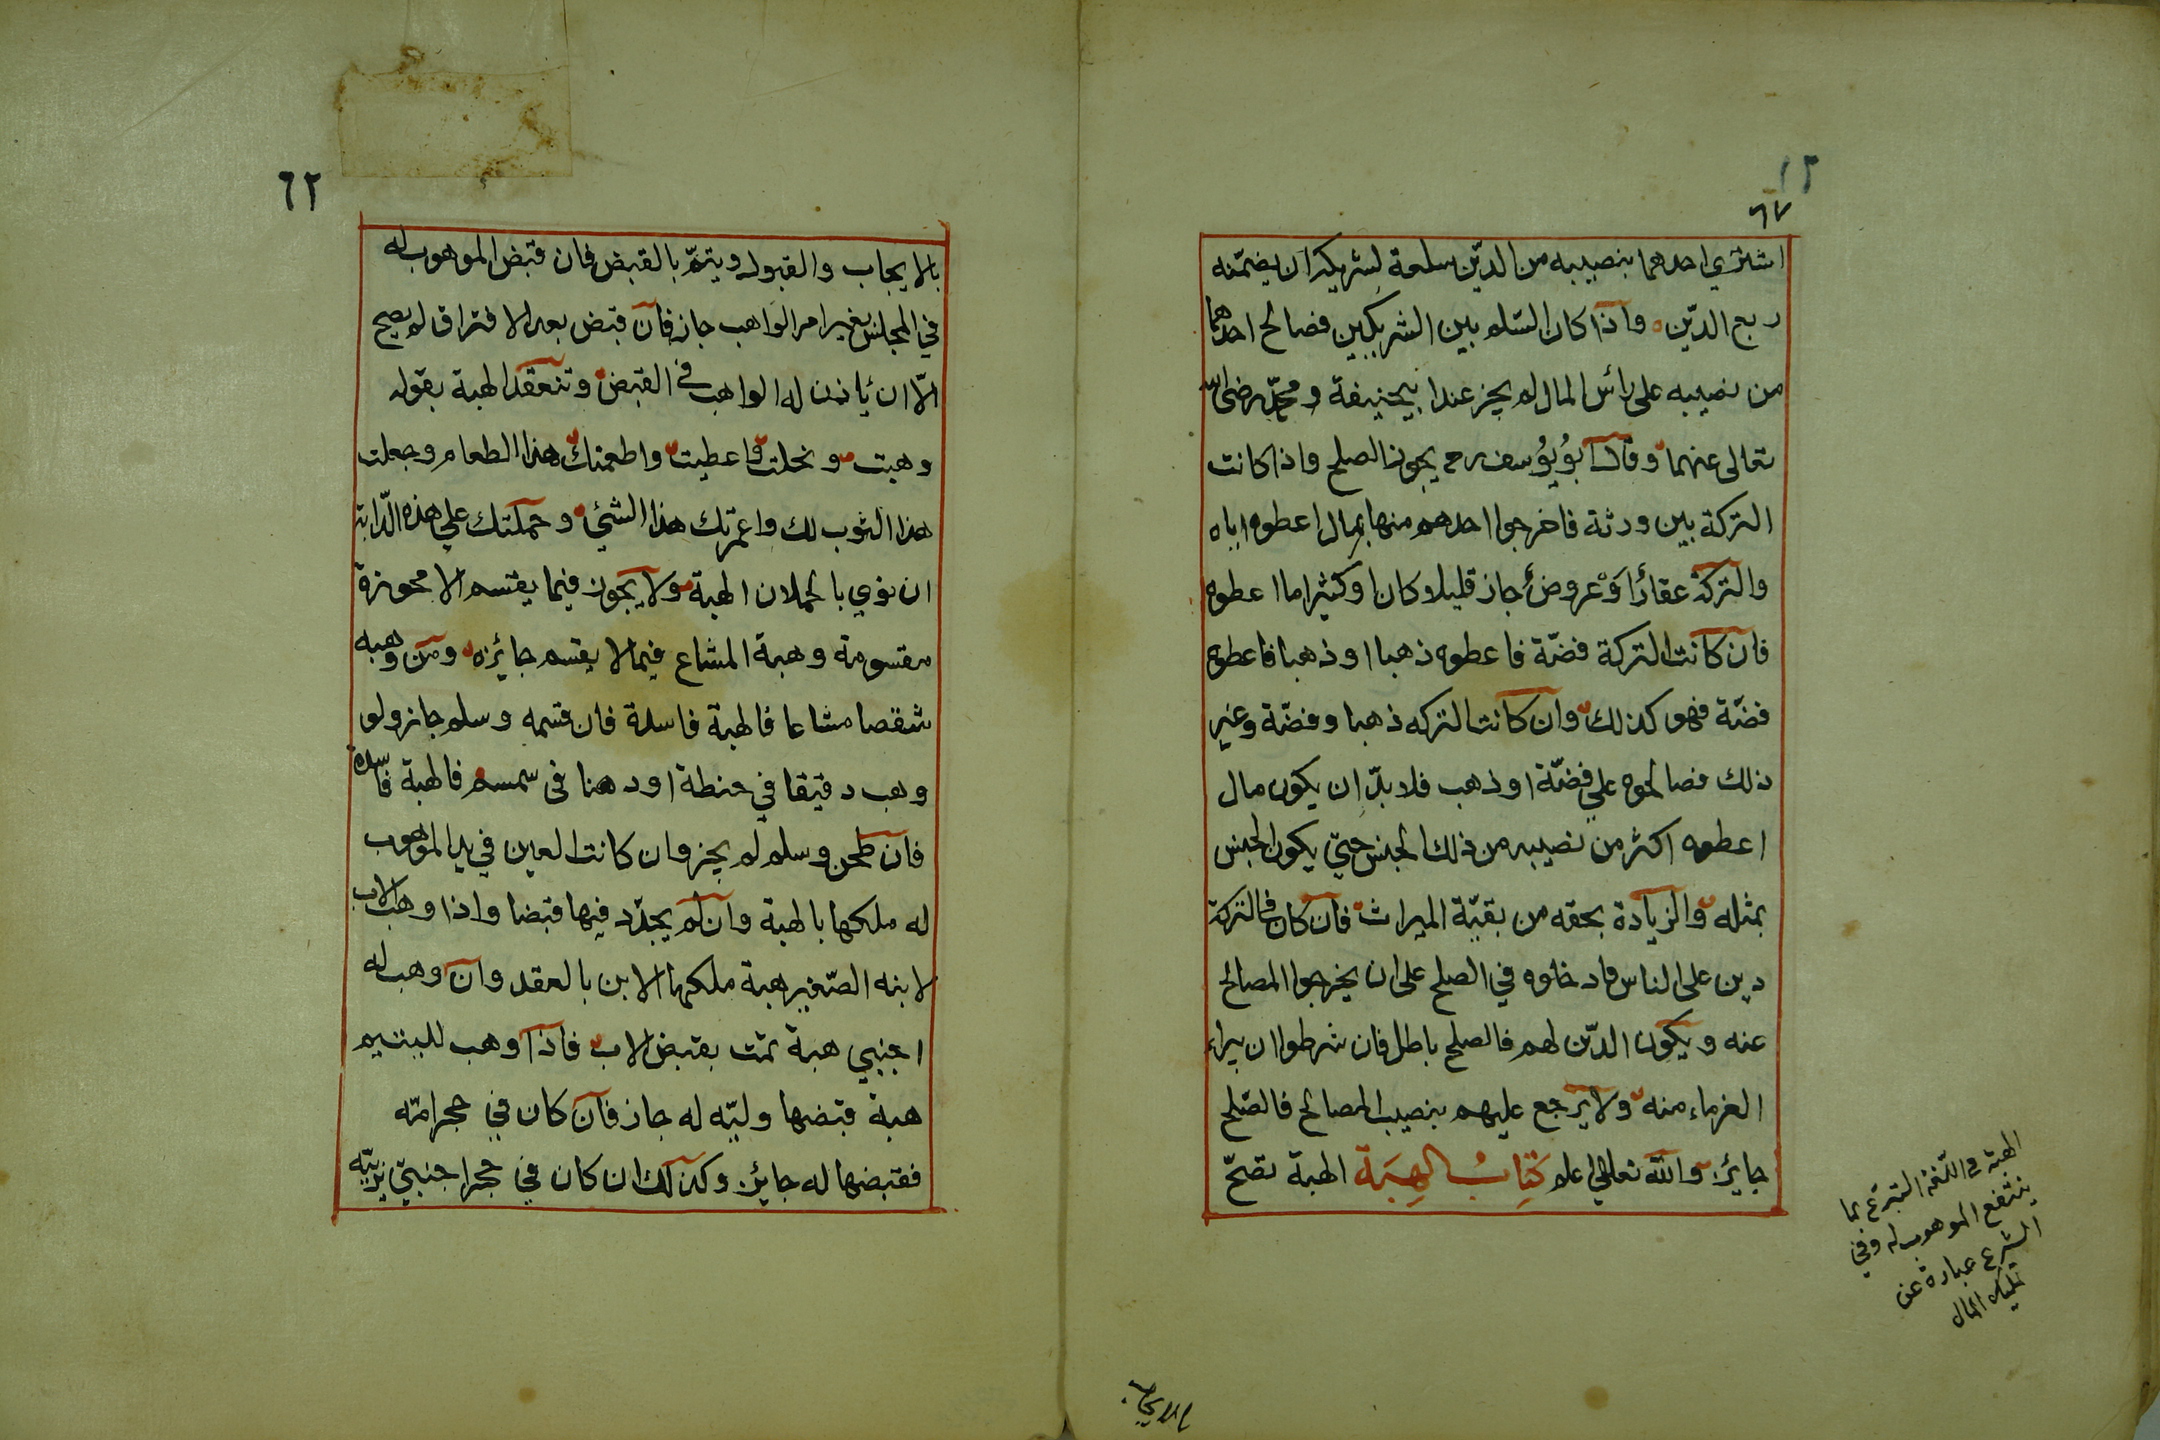 ٦٢
٦٧
اشتري احدهما بنصيبه من الدّين سلعة لشريكه ان يضمّنه
ربع الدّين واذا كان السّلم بين الشريكين فصالح احدهما
من نصيبه على رأس المال لم يجز عند ابيحنيفة ومحمّد رضى الله
تعالى عنهما وقال ابُويُوسف رح يجوز الصلح واذا كانت
التركة بين ورثة فاخرجوا احدهم منها بمال اعطوه اياه
والتركة عقارًا وْ عروضٌ جاز قليلا وكان او كثيرا ما اعطوه
فان كانت التركة فضّة فاعطوه ذهبا او ذهبا فاعطوه
فضّة فهو كذلك وان كانت التركه ذهبا وفضّة وغير
ذلك فصالحوه علي فضّة او ذهب فلا بدّ ان يكون مال
اعطوه اكثر من نصيبه من ذلك الجنس حتي يكون الجنس
بمثله والزيادة بحقه من بقيّة الميراث فان كان في التركة
دين على الناس فادخلوه في الصلح على ان يخرجوا المصالح
عنه ويكون الدّين لهم فالصلح باطل فان شرطوا ان يبراء
الغرماء منه ولا يرجع عليهم بنصيب المصالح فالصّلح
جايز والله تعالي اعلم كتِابُ الهِبَة الهبة تصحّ
الهبة في اللّغة التبرّع بما
ينتفع الموهوب له وفي
الشرع عبارة عن
تمليك المال
بالايجاب
٦٢
بالايجاب والقبول ويتمّ بالقبض فان قبض الموهوب له
في المجلس بغير امر الواهب جاز فان قبض بعد الافتراق لم يصح
الّا ان يأذن له الواهب في القبض وتنعقد الهبة بقوله
وهبت ونحلت واعطيت واطعمتك هذا الطعام وجعلت
هذا الثوب لك واعمرتك هذا الشئ وحملتك علي هذه الدّابة
ان نوي بالحملان الهبة ولا يجوز فيما يقتسم الا محوزة
مقسومة وهبة المشاع فيما لا يقسم جائزه ومن وهبه
شقصا مشاعا فالهبة فاسدة فان قسمه وسلم جاز ولو
وهب دقيقا في حنطة او دهنا في سمسم فالهبة فاسدة
فان طحن وسلم لم يجز وان كانت العين في يد الموهوب
له ملكها بالهبة وان لم يجدّد فيها قبضا واذا وهب الاب
لابنه الصّغير هبة ملكها الابن بالعقد وان وهب له
اجنبي هبة تمت بقبض الاب فاذا وهب لليتيم
هبة قبضها وليّه له جاز فان كان في حجر امّه
فقبضها له جائز وكذلك ان كان في حجر اجنبيّ يربّيه